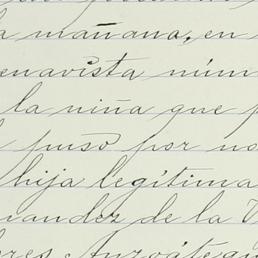 a mañana, en
enavista núm
la niña que p
puso por no
hija legítima
nandez de la V
res Anzoátegui